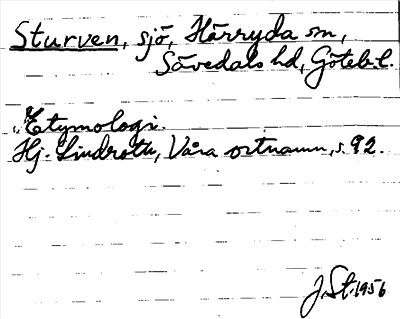 Sturven, sjö, Härryda sn,
Sävedals hd, Göteb. l.
Etymologi.
Hj. Lindroth, Våra ortnamn, s. 92.
J. St. 1956